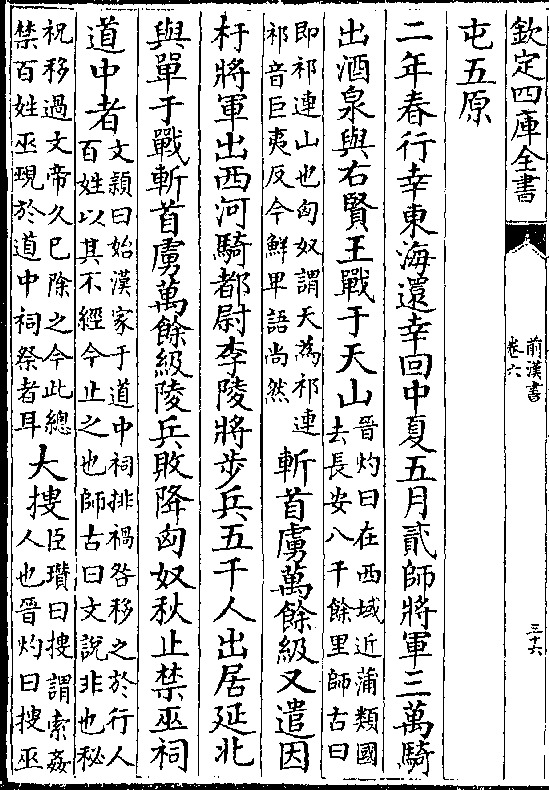 欽定四庫全書
前漢書
卷六
三十六
屯五原
二年春行幸東海還幸回中夏五月貳師將軍三萬騎
出酒泉與右賢王戰于天山
晉灼曰在西域近蒲類國
去長安八千餘里師古曰
即祁連山也匈奴謂天為祁連
祁音巨夷反今鮮卑語尚然
斬首虜萬餘級又遣因
杅將軍出西河騎都尉李陵將步兵五千人出居延北
與單于戰斬首虜萬餘級陵兵敗降匈奴秋止禁巫祠
道中者
文穎曰始漢家于道中祠排禍咎移之於行人
百姓以其不經今止之也師古曰文說非也秘
祝移過文帝久已除之今此總
禁百姓巫覡於道中祠祭者耳
大搜
臣瓚曰搜謂索姦
人也晉灼曰搜巫